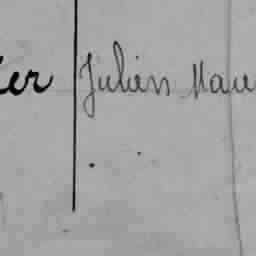 ier Julien Mau